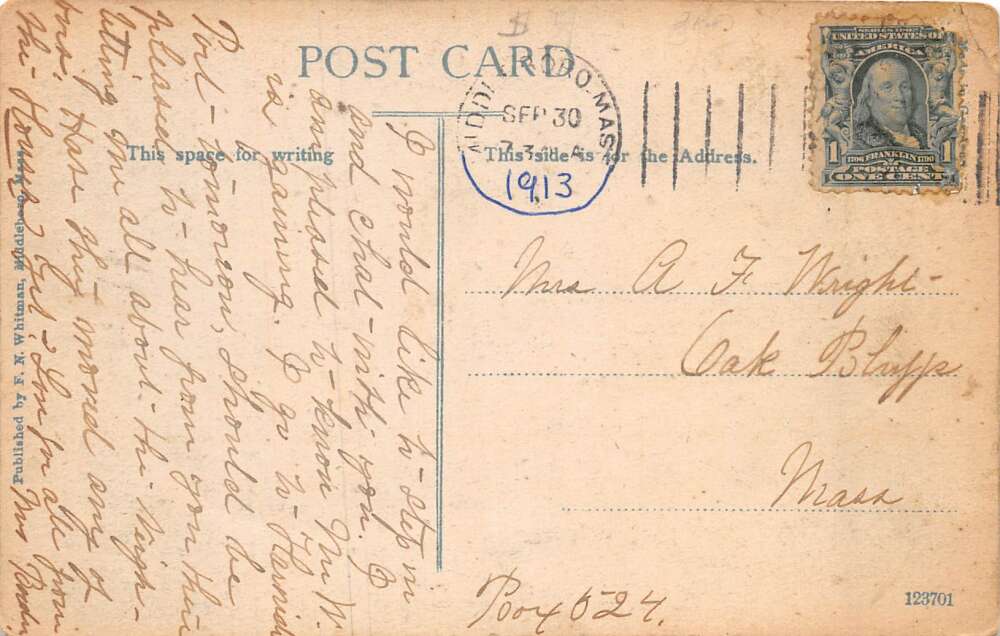 POST CARD
This space for writing
This side is for the Address.
MIDDLEBORO MASS
SEP 30
7-3
1913
SERIES 1902
UNITED STATES OF
AMERICA
1 1
1706 FRANKLIN 1790
POSTAGE
ONE CENT
Mrs A F Wright
Oak Bluffs
Mass
Box 524.
123701
Published by F. N. Whitman, Middleboro, Mass.
I would like to step in
and chat with you. I
am pleased to know Mr W.
is gaining. I go to
Port to-morrow, should be
pleased to hear from you this
letting me all about the
Have they moved any of
the House yet. Love for all from
Mrs